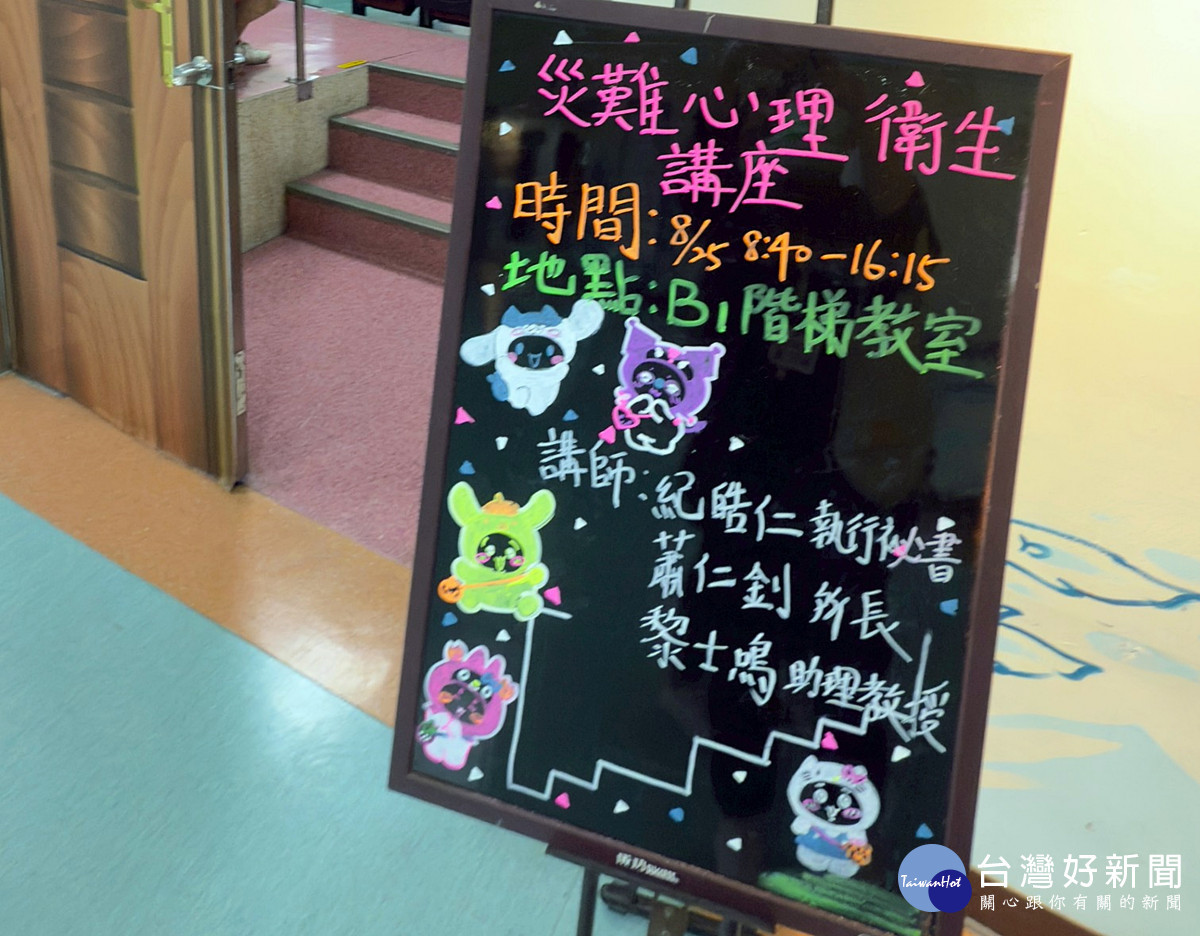 災難心理衛生
講座
時間:8/25 8:40-16:15
地點:B1階梯教室
講師:紀皓仁 執行祕書
蕭仁釗 所長
黎士鳴 助理教授
TaiwanHot
台灣好新聞
關心跟你有關的新聞